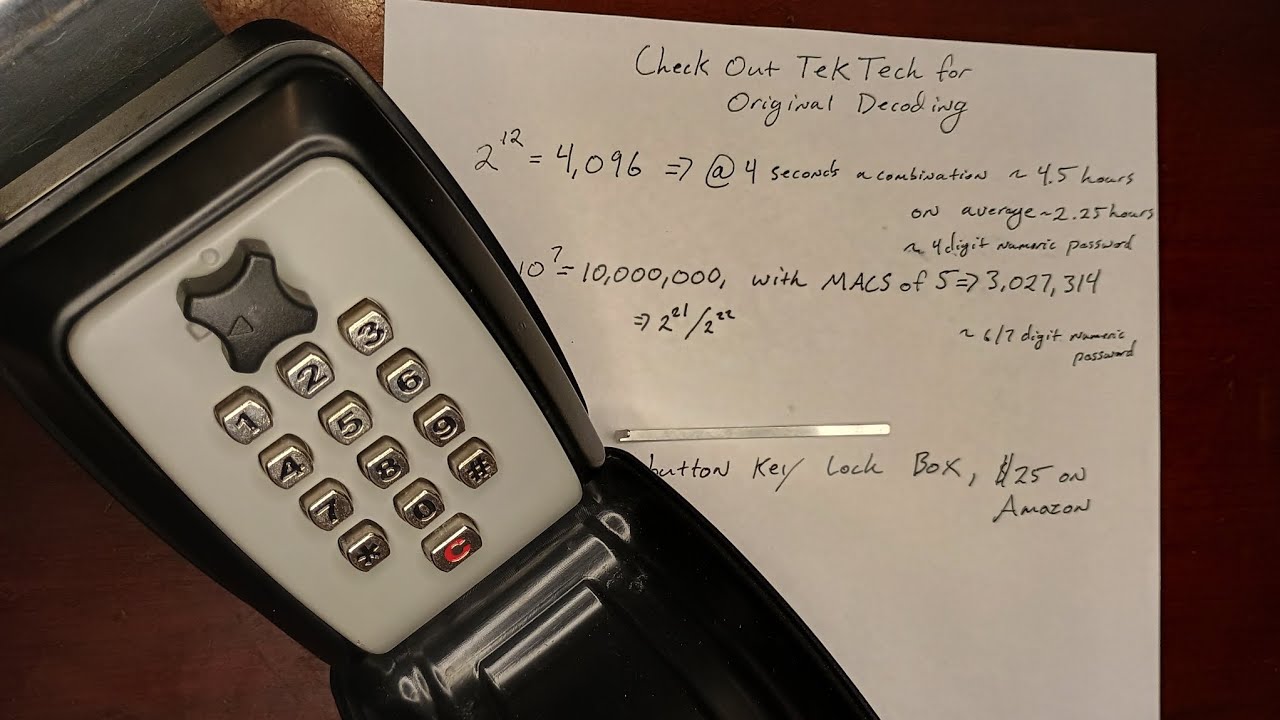 Check Out TekTech for
Original Decoding
2^12 = 4,096 => @ 4 seconds a combination ~ 4.5 hours
on average ~ 2.25 hours
~ 4 digit numeric password
10^7 = 10,000,000, with MACS of 5 => 3,027,314
=> 2^21/2^22
~ 6/7 digit numeric
password
button Key Lock Box, $25 on
Amazon
3
2
6
1
5
9
4
8
#
7
0
*
C